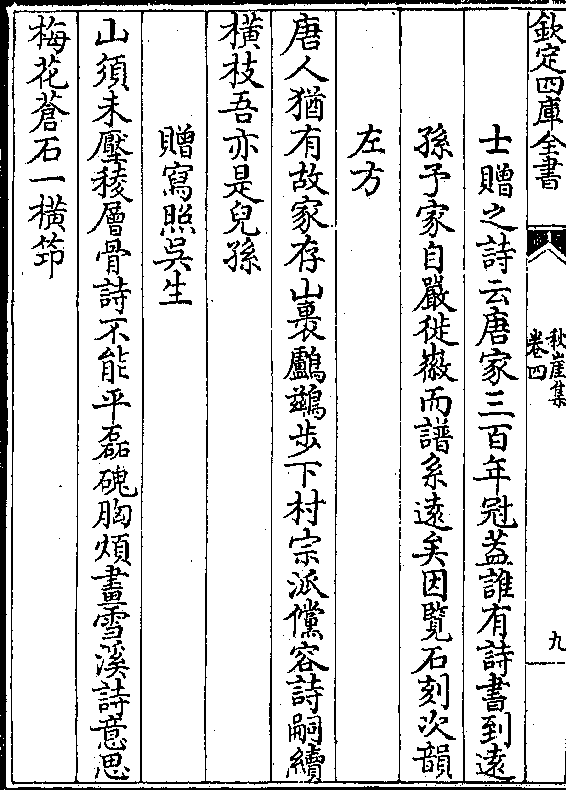 欽定四庫全書
秋崖集
卷四
九
士贈之詩云唐家三百年冠蓋誰有詩書到遠
孫予家自嚴徙㣲而譜系遠矣因覽石刻次韻
左方
唐人猶有故家存山裹鸕鷀步下村宗派儻容詩嗣續
橫枝吾亦是兒孫
贈寫照吳生
山須未壓稜層骨詩不能平磊磈胸煩畫雪溪詩意思
梅花蒼石一橫笻